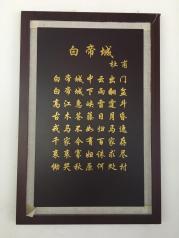 白帝城
杜甫
白帝城中云出门
白帝城下雨翻盆
高江急峡雷霆斗
古木苍藤日月昏
戎马不如归马逸
千家今有百家存
哀哀寡妇诛求尽
恸哭秋原何处村